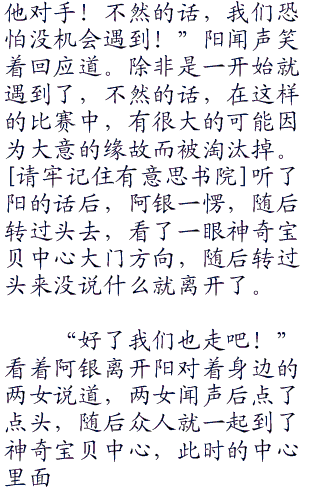 他对手！不然的话，我们恐
怕没机会遇到！”阳闻声笑
着回应道。除非是一开始就
遇到了，不然的话，在这样
的比赛中，有很大的可能因
为大意的缘故而被淘汰掉。
[请牢记住有意思书院]听了
阳的话后，阿银一愣，随后
转过头去，看了一眼神奇宝
贝中心大门方向，随后转过
头来没说什么就离开了。
“好了我们也走吧！”
看着阿银离开阳对着身边的
两女说道，两女闻声后点了
点头，随后众人就一起到了
神奇宝贝中心，此时的中心
里面